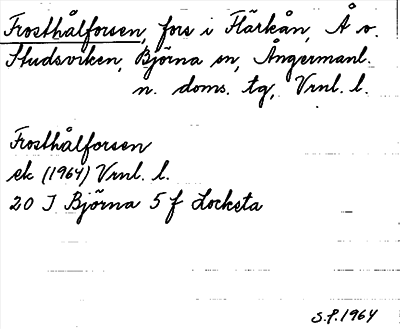 Frosthålforsen, fors i Flärkån, Å v.
Studsviken, Björna sn, Ångermanl.
n. doms. tg, Vrnl. l.
Frosthålforsen
ek (1964) Vrnl. l.
20 I Björna 5 f Locksta
S.P. 1964